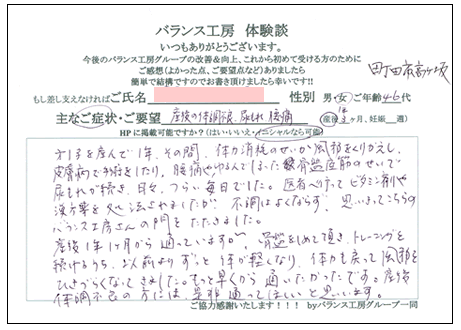 バランス工房 体験談
いつもありがとうございます。
今後のバランス工房グループの改善&向上、これから初めて受ける方のために
ご感想(よかった点、ご要望点など)ありましたら
簡単で結構ですのでお書き頂けましたら幸いです!!
町田市高ヶ坂
もし差し支えなければご氏名 性別 男・女 ご年齢 40代
主なご症状・ご要望 産後の体調不良、尿もれ 腰痛 産後 ヶ月、妊娠 週)
HPに掲載可能ですか?(はい・いいえ・イニシャルなら可能)
オ1子を産んで1年、その間、体力消耗のせいか風邪をくりかえし、
皮膚病で お腹 腰痛や ゆるんでしまった骨盤底筋のせいで
尿もれが続き、日々、つらい毎日でした。医者へ行ってビタミン剤や
漢方薬を処方されましたが 不調はよくならず、思いきってこちらの
バランス工房さんの門をたたきました。
産後1年1ヶ月から通っていますが、骨盤をしめて頂き、トレーニングを
続けるうち、以前よりずっと体が軽くなり、体力も戻って風邪を
ひきづらくなってきました。もっと早くから通いたかったです。産後
体調不良の方には是非通ってほしいと思います。
ご協力感謝いたします!!! byバランス工房グループ一同